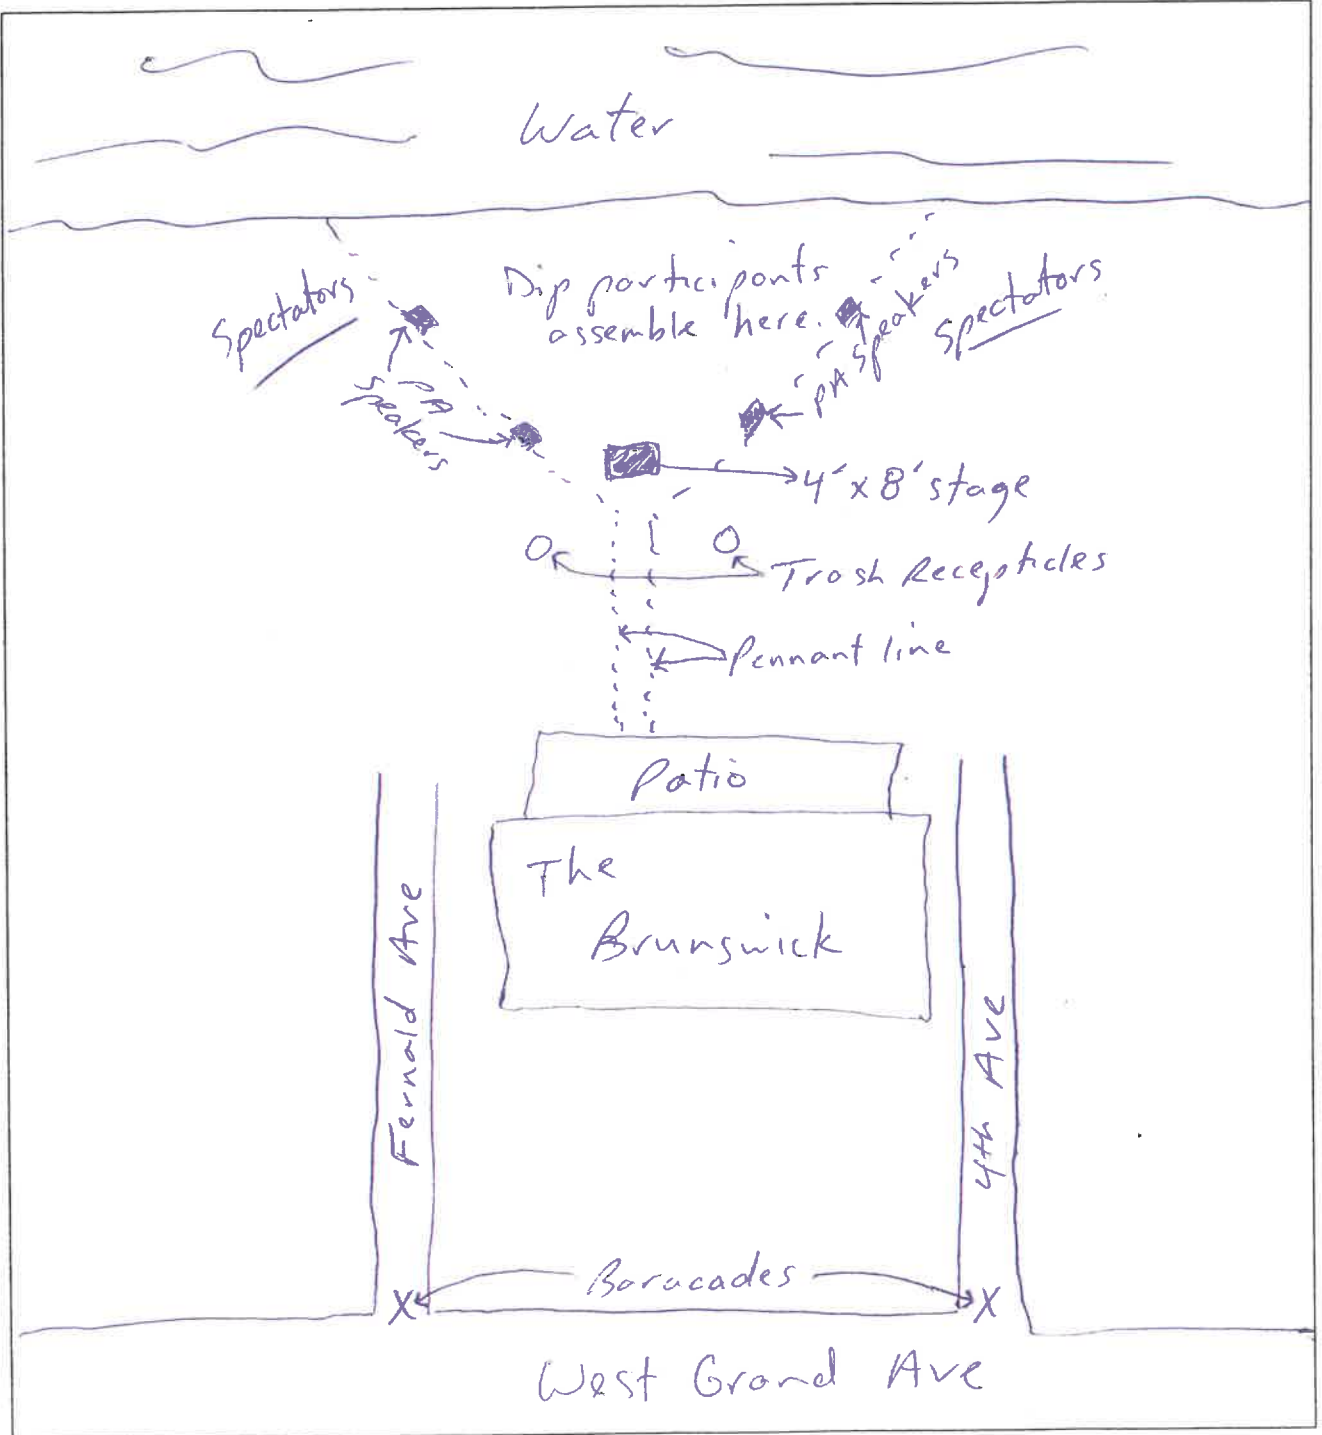 Water
Dip participants
assemble here.
Spectators
Spectators
PA
Speakers
PA Speakers
4' x 8' stage
Trash Recepticles
Pennant line
Patio
The
Brunswick
Fernald Ave
4th Ave
X
Baracades
X
West Grand Ave